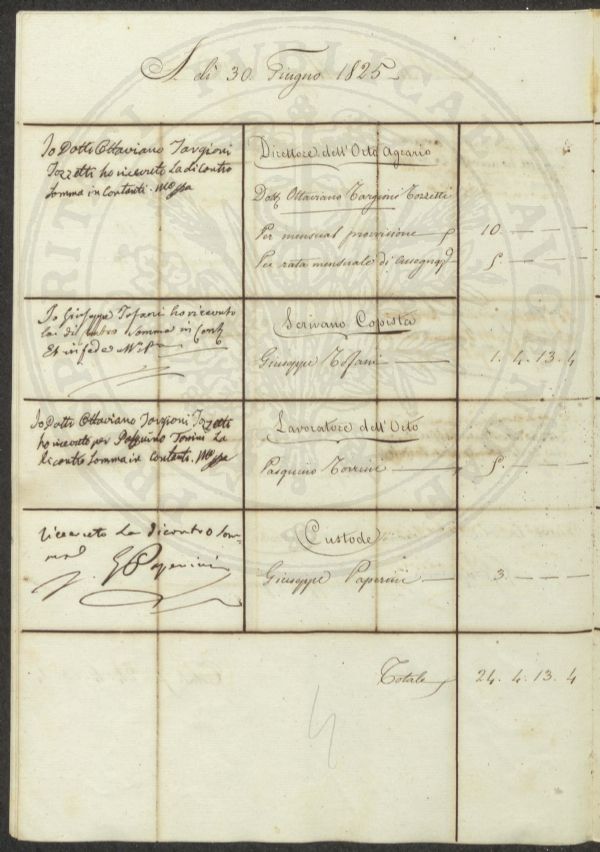 A dì 30. Giugno 1825.
Io Dottr Ottaviano Targioni
Tozzetti ho ricevuto La di Contro
Somma in Contanti. Mo ppa
Direttore dell'Orto Agrario
Dott. Ottaviano Targioni Tozzetti
Per mensual provvisione 10. — — —
Per rata mensuale di 5. — — —
Io Giuseppe Tofani ho ricevuto
la di contro Somma in
Et in fede
Scrivano Copista
Giuseppe Tofani 1. 4. 13. 4
Io Dottr Ottaviano Targioni Tozzetti
ho ricevuto per Pasquino Torrini La
di contro Somma in Contanti. Mo ppa
Lavoratore dell'Orto
Pasquino Torrini 5. — — —
ricevuto La di contro Som-
ma
G Paperini
Custode
Giuseppe Paperini 3. — — —
Totale 24. 4. 13. 4